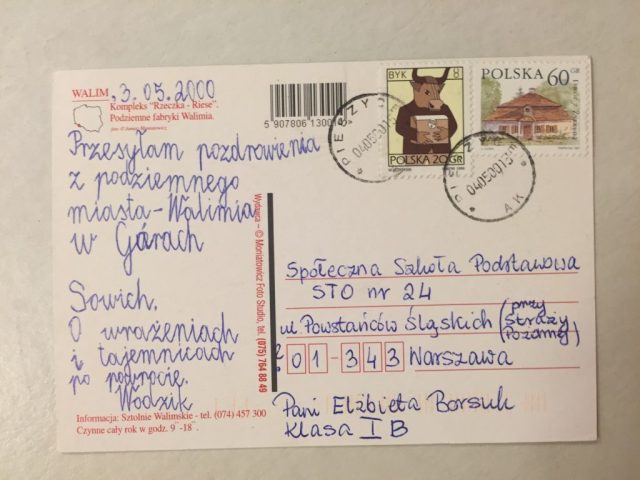 WALIM, 3.05.2000
Kompleks "Rzeczka - Riese".
Podziemne fabryki Walimia.
Przesyłam pozdrowienia
z podziemnego
miasta-Walimia
w Górach
Sowich.
O wrażeniach
i tajemnicach
po powrocie.
Wodzik
Informacja: Sztolnie Walimskie - tel. (074) 457 300
Czynne cały rok w godz. 9 -18
5 907806 13001
Wydawca - © Moniatowicz Foto Studio, tel. (075) 764 88 49
BYK 8
POLSKA 20 GR
POLSKA 60 GR
Społeczna Szkoła Podstawowa
STO nr 24
ul Powstańców Śląskich (przy Straży Pożarnej)
01-343 Warszawa
Pani Elżbieta Borsuk
Klasa I B